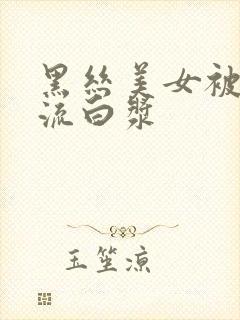 黑丝美女被
流白浆
玉笙凉